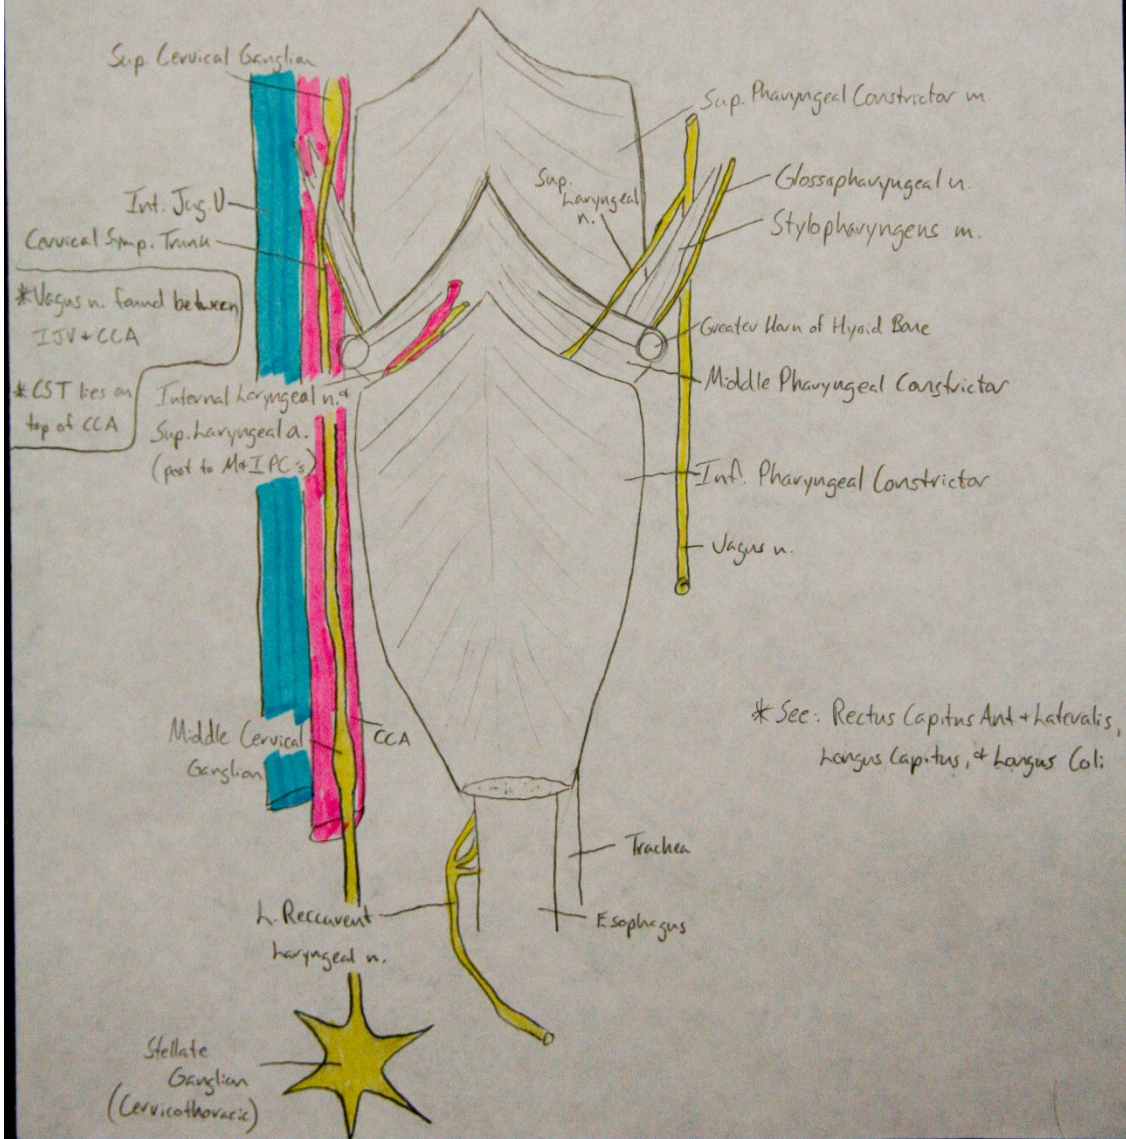 Sup. Cervical Ganglion
Int. Jug. V
Cervical Symp. Trunk
*Vagus n. found between
IJV + CCA
*CST lies on
top of CCA
Internal Laryngeal n. &
Sup. Laryngeal a.
(post to M+I PC's)
Middle Cervical
Ganglion
CCA
L. Reccurent
Laryngeal n.
Stellate
Ganglion
(Cervicothoracic)
Sup. Pharyngeal Constrictor m.
Sup.
Laryngeal
n.
Glossopharyngeal n.
Stylopharyngeus m.
Greater Horn of Hyoid Bone
Middle Pharyngeal Constrictor
Inf. Pharyngeal Constrictor
Vagus n.
*See: Rectus Capitus Ant + Lateralis,
Longus Capitus, & Longus Coli
Trachea
Esophagus